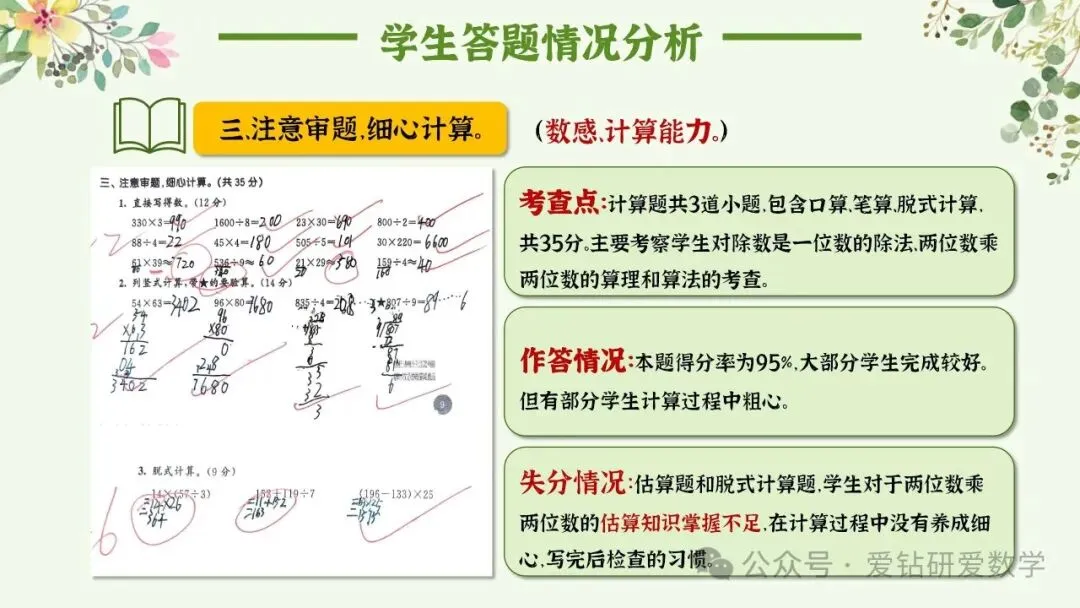 学生答题情况分析
三、注意审题,细心计算。
(数感、计算能力。)
三、注意审题,细心计算。(共 35 分)
1. 直接写得数。(12 分)
330×3=990 1600÷8=200 23×30=690 800÷2=400
88÷4=22 45×4=180 505÷5=101 30×220=6600
61×39≈720 536÷9≈60 21×29≈580 159÷4≈40
2. 列竖式计算,带★的要验算。(14 分)
54×63=3402 96×80=7680 835÷4=208……3 ★807÷9=89……6
162
3402
7680
3. 脱式计算。(9 分)
14×(57÷3) 153+119÷7 (196-133)×25
考查点:计算题共3道小题,包含口算,笔算,脱式计算,
共35分。主要考察学生对除数是一位数的除法,两位数乘
两位数的算理和算法的考查。
作答情况:本题得分率为95%,大部分学生完成较好。
但有部分学生计算过程中粗心。
失分情况:估算题和脱式计算题,学生对于两位数乘
两位数的估算知识掌握不足,在计算过程中没有养成细
心,写完后检查的习惯。
公众号·爱钻研爱数学